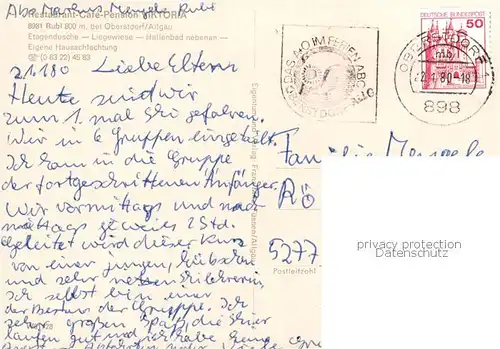 Abs Markus Mengele Rubi
Restaurant-Café-Pension VIKTORIA
8981 Rubi 800 m, bei Oberstdorf/Allgäu
Etagendusche — Liegewiese — Hallenbad nebenan —
Eigene Hausschlachtung
(0 83 22) 45 83
2.1.80 Liebe Eltern
Heute sind wir
zum 1 mal Ski gefahren.
Wir in 6 Gruppen eingeteilt.
Ich kam in die Gruppe
der fortgeschrittenen Anfänger.
Wir vormittags und nach
mittags jeweils 2 Std.
Geleitet wird dieser Kurs
von einer jungen, hübschen
und sehr netten Skilehrerin.
Ich selbst bin einer
der Besten der Gruppe. Ich
großen Spaß, die Skier
laufen gut und ich habe keine
DAS A-O IM FERIEN-ABC
OBERSTDORF
OBERSTDORF 1
mb
2.1.80-18
898
DEUTSCHE BUNDESPOST
50
Familie
5277
Postleitzahl
privacy protection
Datenschutz